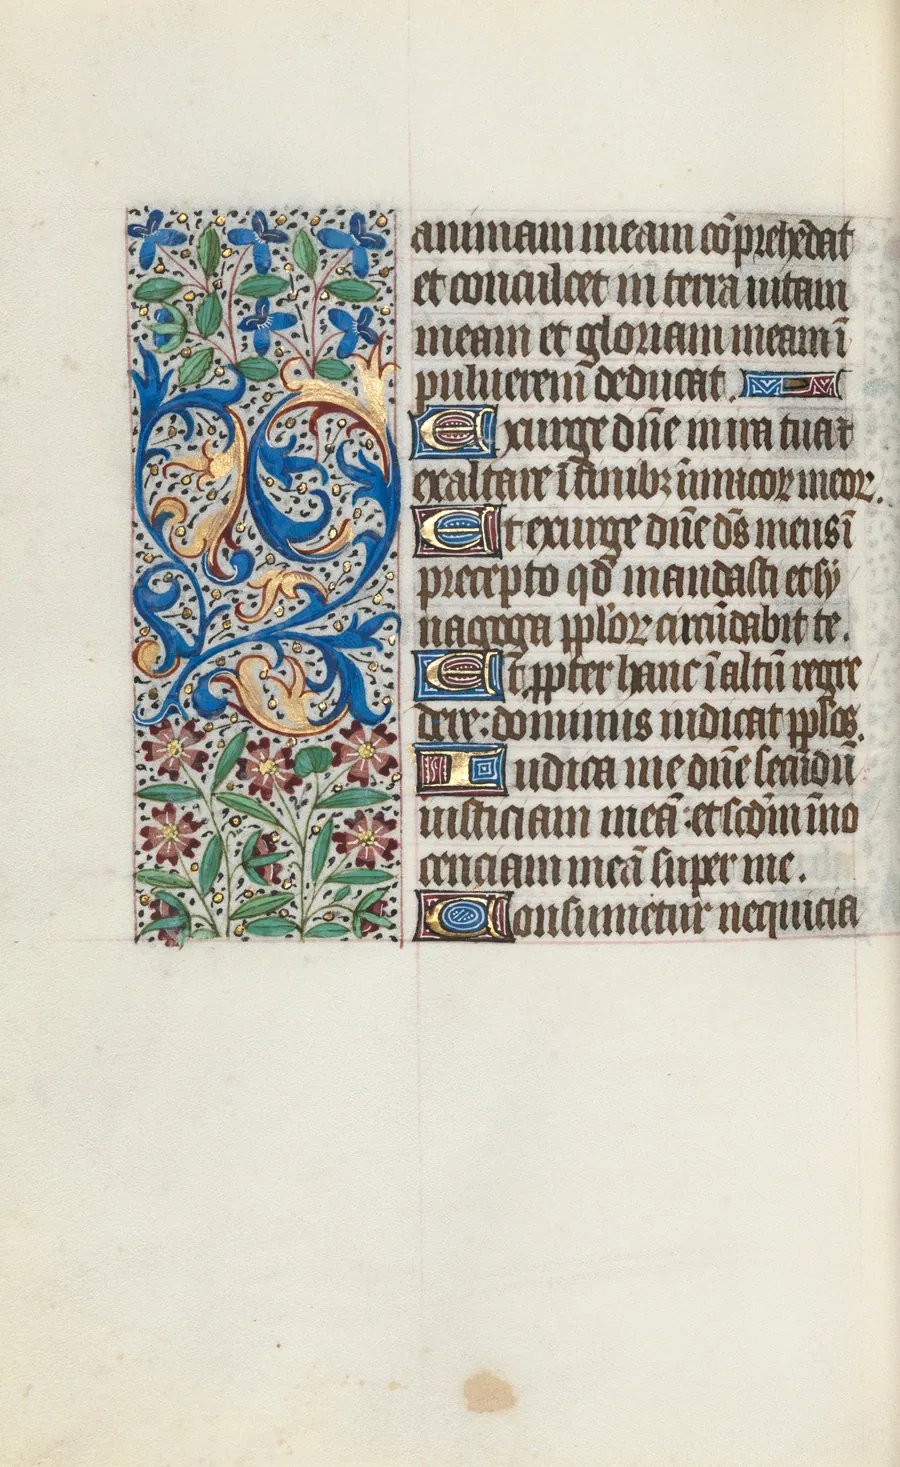 animam meam cōprehēdat
et conculcet in terra uitam
meam et gloriam meam ī
puluerem deducat
Exurge dn̄e in ira tua et
exaltare ī finibꝫ īnimicoꝝ meoꝝ.
Et exurge dn̄e ds̄ meus ī
precepto qd̄ mandasti et sy
nagoga pp̄loꝝ circūdabit te.
Et ꝓpter hanc ī altū regre
dere: dominus iudicat pp̄los.
Iudica me dn̄e secūdū
iusticiam meā: et scd̄m īno
cenciam meā super me.
Consumetur nequicia